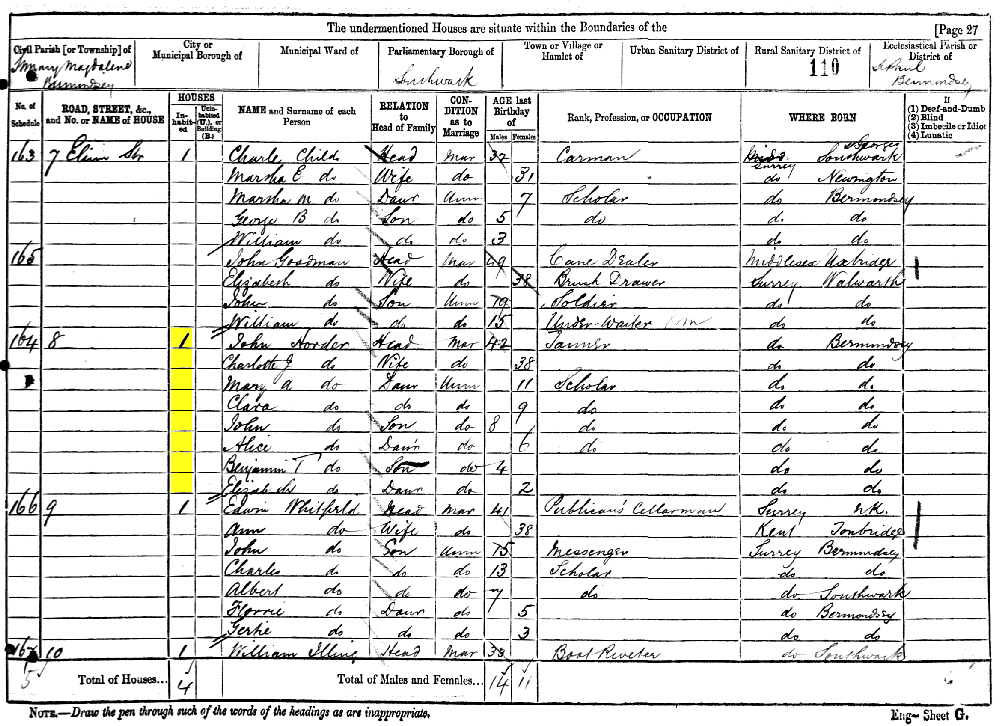 The undermentioned Houses are situate within the Boundaries of the [Page 27
Civil Parish [or Township] of City or Municipal Borough of Municipal Ward of Parliamentary Borough of Town or Village or Hamlet of Urban Sanitary District of Rural Sanitary District of Ecclesiastical Parish or District of
St Mary Magdalene Bermondsey Southwark 110 St Paul Bermondsey
No. of Schedule ROAD, STREET, &c., and No. or NAME of HOUSE HOUSES In-habit-ed Unin-habited (U.), or Building (B.) NAME and Surname of each Person RELATION to Head of Family CON-DITION as to Marriage AGE last Birthday of Males Females Rank, Profession, or OCCUPATION WHERE BORN If (1) Deaf-and-Dumb (2) Blind (3) Imbecile or Idiot (4) Lunatic
163 7 Elim Str 1 Charles Childs Head Mar 32 Carman Surrey Southwark
Marsha E do Wife do 31 do Newington
Marsha M do Daur Unm 7 Scholar do Bermondsey
George B do Son do 5 do do do
William do do do 3 do do
165 John Goodman Head Mar 49 Cane Dealer Middlesex Uxbridge
Elizabeth do Wife do 38 Brush Drawer Surrey Walworth
John do Son Unm 19 Soldier do do
William do do do 15 Under-Waiter do do
164 8 1 John Horder Head Mar 42 Tanner do Bermondsey
Charlotte J do Wife do 38 do do
Mary A do Daur Unm 11 Scholar do do
Clara do do do 9 do do do
John do Son do 8 do do do
Alice do Daur do 6 do do do
Benjamin T do Son do 4 do do
Elizabeth do Daur do 2 do do
166 9 1 Edwin Whitfield Head Mar 41 Publican's Cellarman Surrey N.K.
Ann do Wife do 38 Kent Tonbridge
John do Son Unm 15 Messenger Surrey Bermondsey
Charles do do do 13 Scholar do do
Albert do do do 7 do do Southwark
Florrie do Daur do 5 do Bermondsey
Gertie do do do 3 do do
167 10 1 William Illing Head Mar 33 Boot Riveter do Southwark
5 Total of Houses... 4 Total of Males and Females... 14 11
NOTE.—Draw the pen through such of the words of the headings as are inappropriate. Eng—Sheet G.